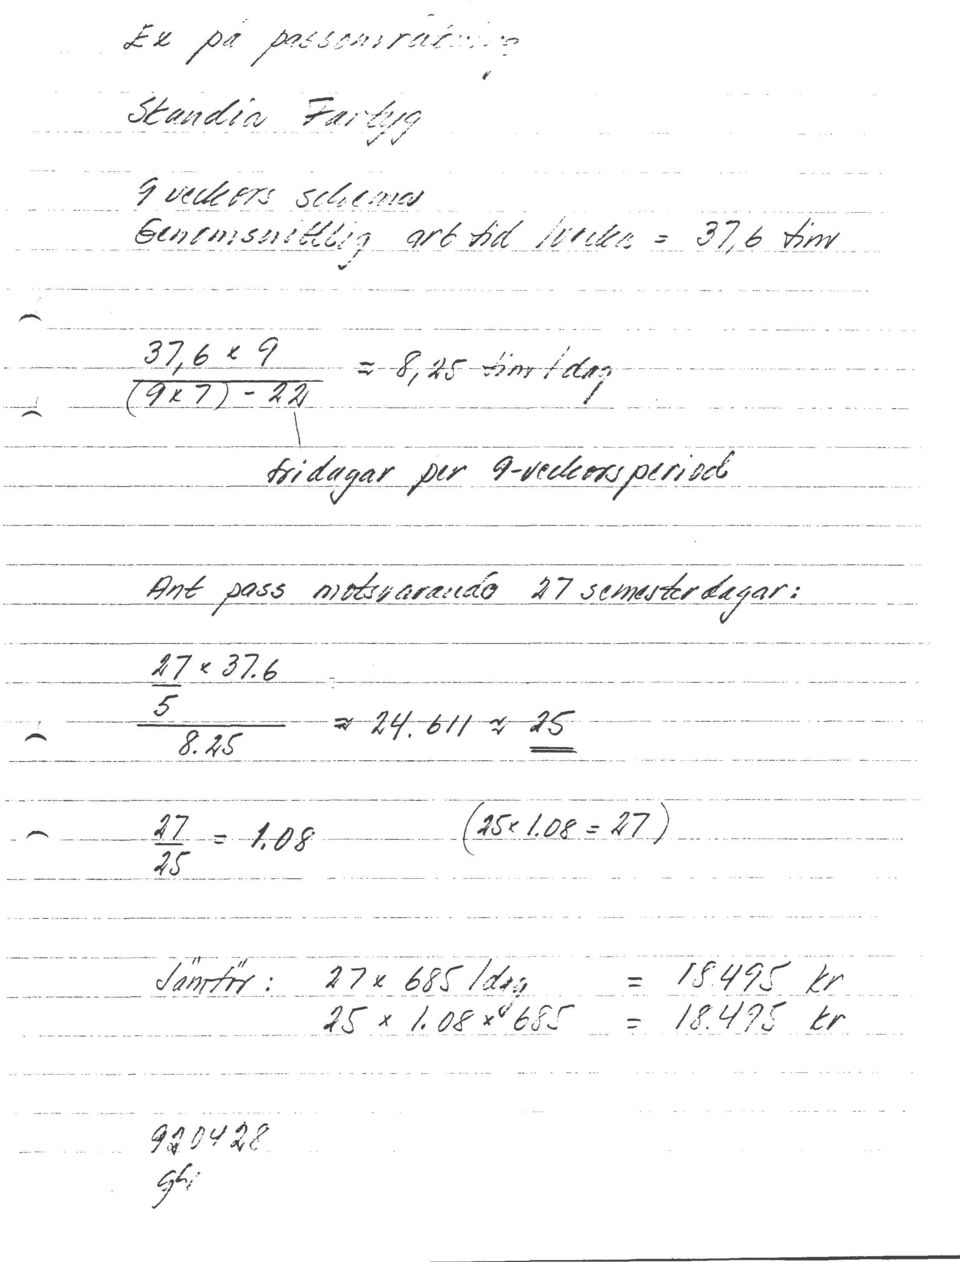 Ex på passomräkning
Skandia Fartyg
9 veckors schema
Genomsnittlig arb tid /vecka = 37,6 tim
37,6 x 9
(9x7) - 22
≈ 8,25 tim/dag
fridagar per 9-veckorsperiod
Ant pass motsvarande 27 semesterdagar:
27 x 37.6
5
8.25
≈ 24.611 ≈ 25
27
25
= 1.08 (25x1.08 = 27)
Jämför: 27x 685 /dag = 18.495 kr
25 x 1.08 x 685 = 18.495 kr
920428